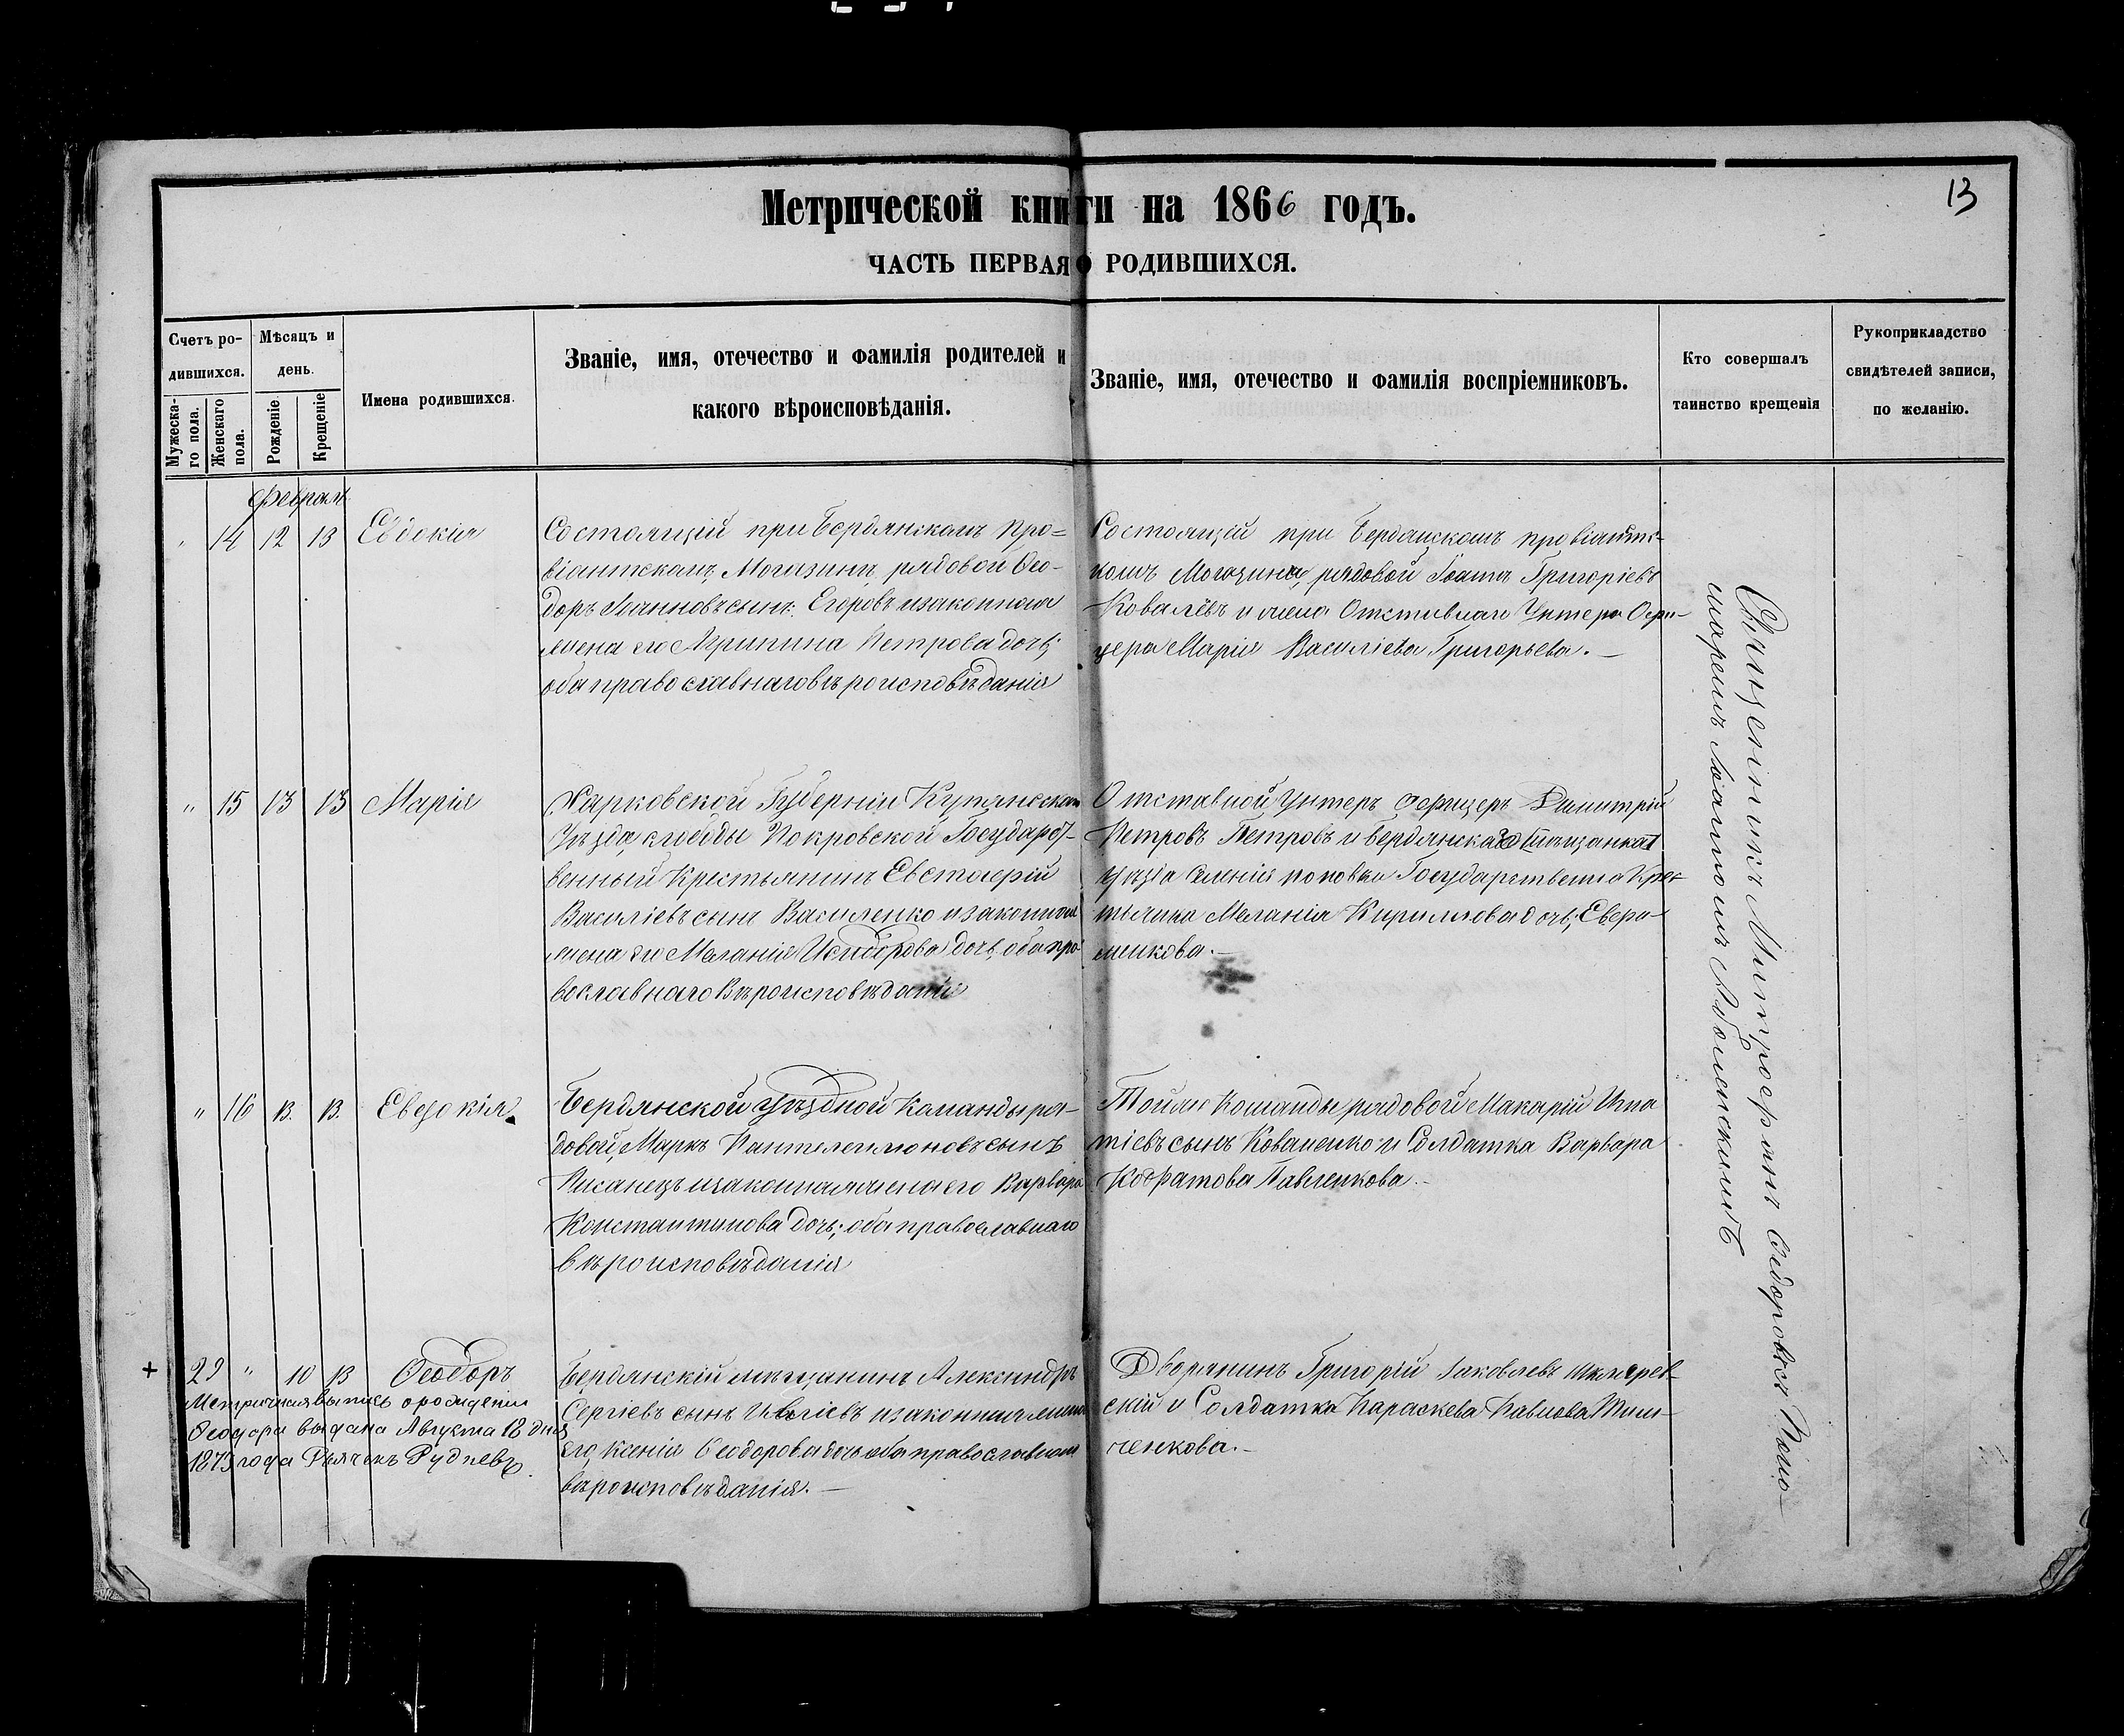 Метрической книги на 1866 годъ.
13
ЧАСТЬ ПЕРВАЯ О РОДИВШИХСЯ.
Счетъ ро-
дившихся.
Мужеска-
го пола.
Женскаго
пола.
Мѣсяцъ и
день.
Рожденіе.
Крещеніе
Имена родившихся.
Званіе, имя, отечество и фамилія родителей и
какого вѣроисповѣданія.
Званіе, имя, отечество и фамилія воспріемниковъ.
Кто совершалъ
таинство крещенія
Рукоприкладство
свидѣтелей записи,
по желанію.
Февраль
" 14 12 13 Евдокія
Состоящій при Бердянскамъ Про=
віантскамъ Могазинѣ рядовой Ѳео-
доръ Іоанновъ сынъ Егоровъ и законная
жена его Агрипина Петрова дочь;
оба православнаго вѣроисповѣданія
Состоящій при Бердянскомъ провіантс-
комъ Могазинѣ, рядовой Іоаннъ Григоріевъ
Ковалёвъ и жена Отставнаго Унтеръ Офи-
цера Марія Василіева Григорьева. —
" 15 13 13 Марія
Харковской Губерніи Купянскаго
Уѣзда, слободы Покровской Государст-
венный Крестьянинъ Евстафій
Василіевъ сынъ Василенко и законная
жена его Меланія Исидорова дочь, оба пра-
вославнаго Вѣроисповѣданія
Отставной Унтеръ Офицеръ Димитрій
Петровъ Петровъ и Бердянскаго
Уѣзда Селенія Поповки Государственна Крес-
тьянка Меланія Кириллова дочь;
" 16 13. 13. Евдокія
Бердянской Уѣздной Команды ря-
довой, Маркъ Пантелеимоновъ сынъ
Писанецъ и законная жена его Варвара
Константинова дочь; оба православнаго
вѣроисповѣданія
Тойже Команды рядовой Макарій Игна
тіевъ сынъ Коваленко и Солдатка Варвара
Кодратова Павленкова. —
+ 29 " 10 13 Ѳеодоръ
Бердянскій мѣщанинъ Александръ
Сергіевъ сынъ и законная жена
его, Ксенія Ѳеодорова дочь оба православнаго
вѣроисповѣданія. —
Дворянинъ Григорій Іаковлевъ
скій и Солдатка Параскева Павлова Тим-
ченкова. —
Метричная выпись о рожденіи
Ѳеодора выдана Августа 18 дня
1873 года Рудневъ
Священникъ Митрофанъ Ѳедоровъ Поно-
маревъ